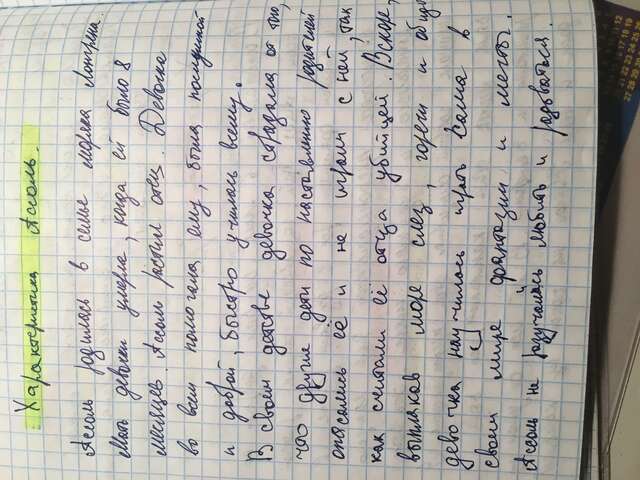 Характеристика Ассоль.
Ассоль родилась в семье моряка Лонгрена.
Мать девочки умерла, когда ей было 8
месяцев. Ассоль растил отец. Девочка
во всем помогала ему, была послушной
и доброй, быстро училась всему.
В своем детстве девочка страдала от того,
что другие дети по наставлению родителей
опасались её и не играли с ней, так
как считали её отца убийцей. Вскоре,
выплакав море слез, горечи и обид
девочка научилась играть сама в
своем мире фантазии и мечты.
Ассоль не разучилась любить и радоваться.